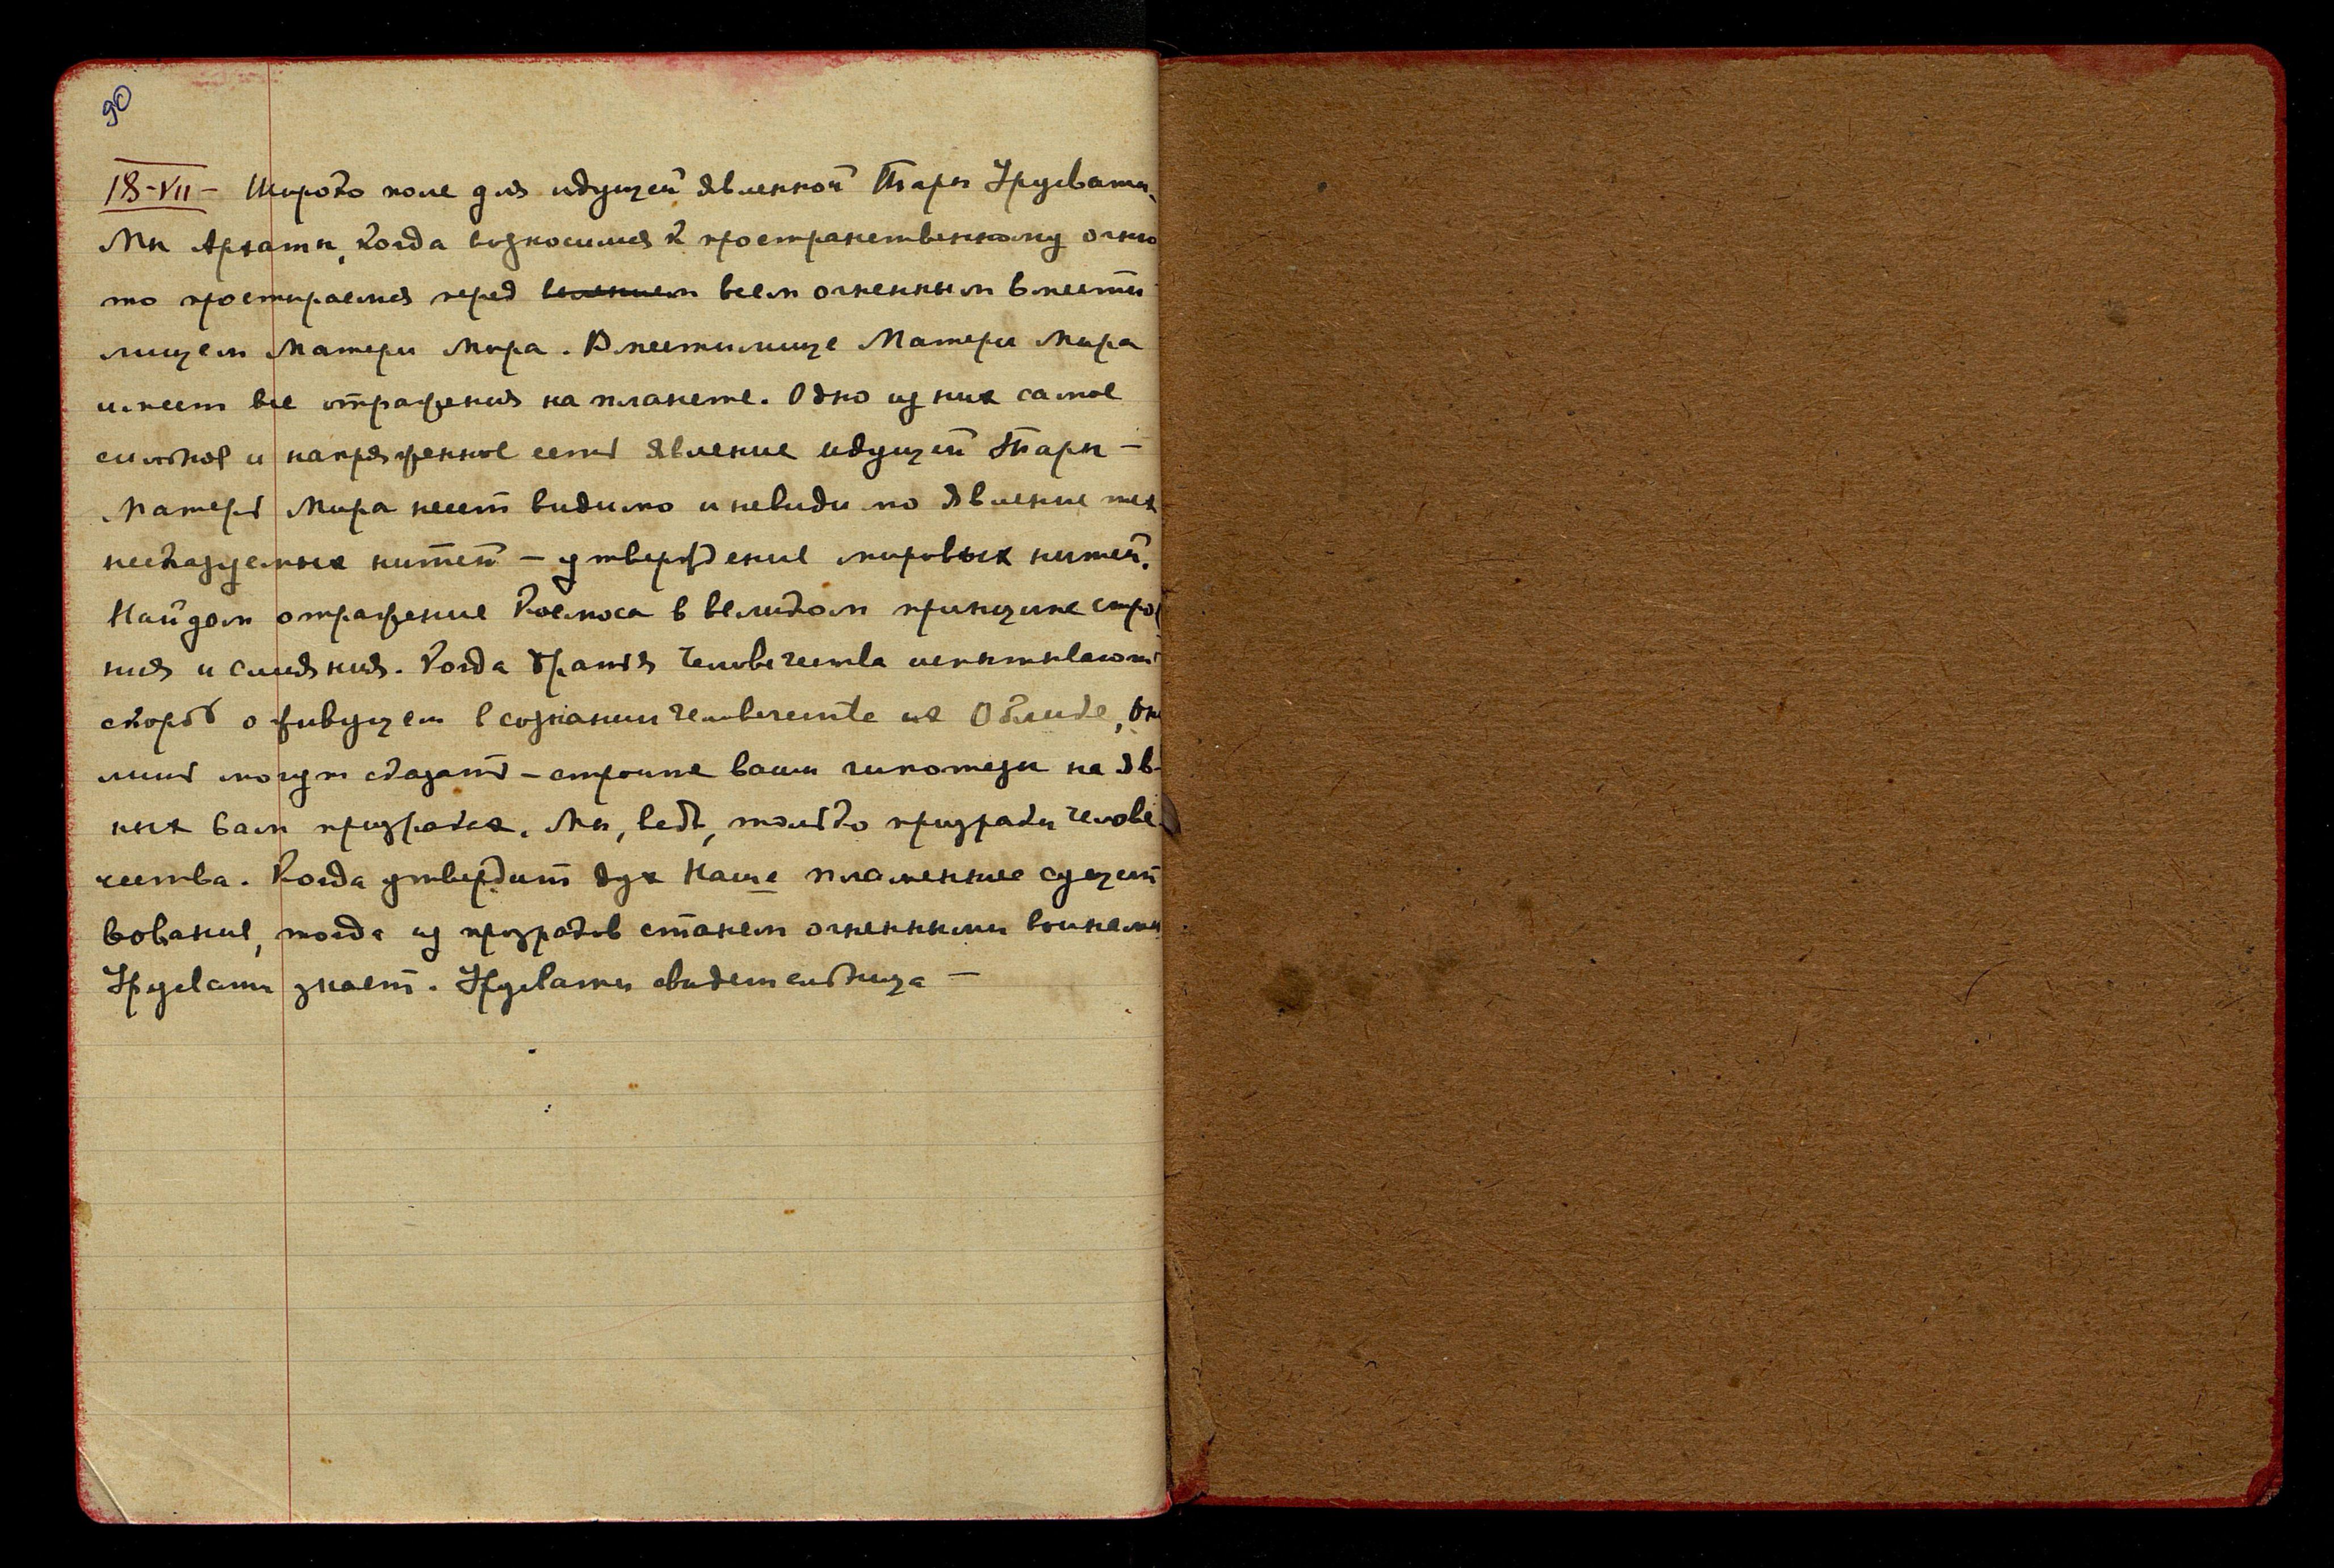 90
18-VII- Широко поле для идущей явленной Тары Урусвати.
Мы Архаты, когда возносимся к пространственному огню
то простираемся перед всем огненным вмести
лищем Матери Мира. Вместилище Матери Мира
имеет все отражения на планете. Одно из них самое
сильное и напряженное есть явление идущей Тары –
Матерь Мира несет видимо и невидимо явление тех
несказуемых нитей – утверждение мировых нитей.
Найдем отражение Космоса в великом принципе строе
ния и слияния. Когда Братья Человечества испытывают
скорбь о живущем в сознании человечестве их Облике, они
лишь могут сказать – стройте ваши гипотезы на яв-
ных вам призраках. Мы, ведь, только призраки челове-
чества. Когда утвердит дух Наше пламенное сущест
вование, тогда из призраков станем огненными воинами
Урусвати знает. Урусвати свидетельница –